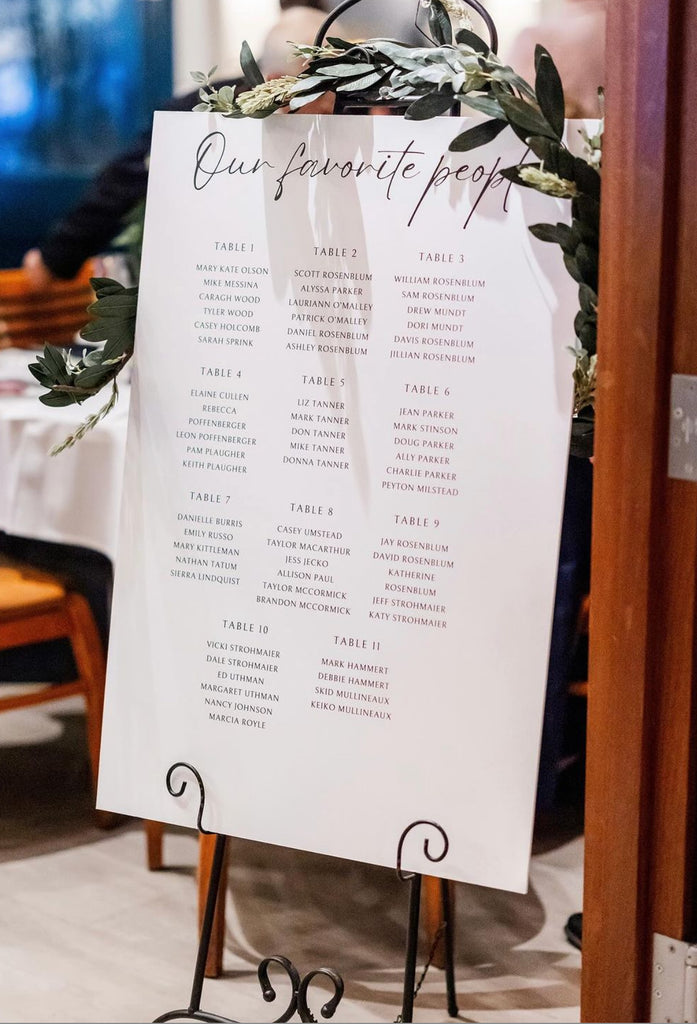 Our favorite peopl
TABLE 1
MARY KATE OLSON
MIKE MESSINA
CARAGH WOOD
TYLER WOOD
CASEY HOLCOMB
SARAH SPRINK
TABLE 2
SCOTT ROSENBLUM
ALYSSA PARKER
LAURIANN O'MALLEY
PATRICK O'MALLEY
DANIEL ROSENBLUM
ASHLEY ROSENBLUM
TABLE 3
WILLIAM ROSENBLUM
SAM ROSENBLUM
DREW MUNDT
DORI MUNDT
DAVIS ROSENBLUM
JILLIAN ROSENBLUM
TABLE 4
ELAINE CULLEN
REBECCA
POFFENBERGER
LEON POFFENBERGER
PAM PLAUGHER
KEITH PLAUGHER
TABLE 5
LIZ TANNER
MARK TANNER
DON TANNER
MIKE TANNER
DONNA TANNER
TABLE 6
JEAN PARKER
MARK STINSON
DOUG PARKER
ALLY PARKER
CHARLIE PARKER
PEYTON MILSTEAD
TABLE 7
DANIELLE BURRIS
EMILY RUSSO
MARY KITTLEMAN
NATHAN TATUM
SIERRA LINDQUIST
TABLE 8
CASEY UMSTEAD
TAYLOR MACARTHUR
JESS JECKO
ALLISON PAUL
TAYLOR MCCORMICK
BRANDON MCCORMICK
TABLE 9
JAY ROSENBLUM
DAVID ROSENBLUM
KATHERINE
ROSENBLUM
JEFF STROHMAIER
KATY STROHMAIER
TABLE 10
VICKI STROHMAIER
DALE STROHMAIER
ED UTHMAN
MARGARET UTHMAN
NANCY JOHNSON
MARCIA ROYLE
TABLE 11
MARK HAMMERT
DEBBIE HAMMERT
SKID MULLINEAUX
KEIKO MULLINEAUX